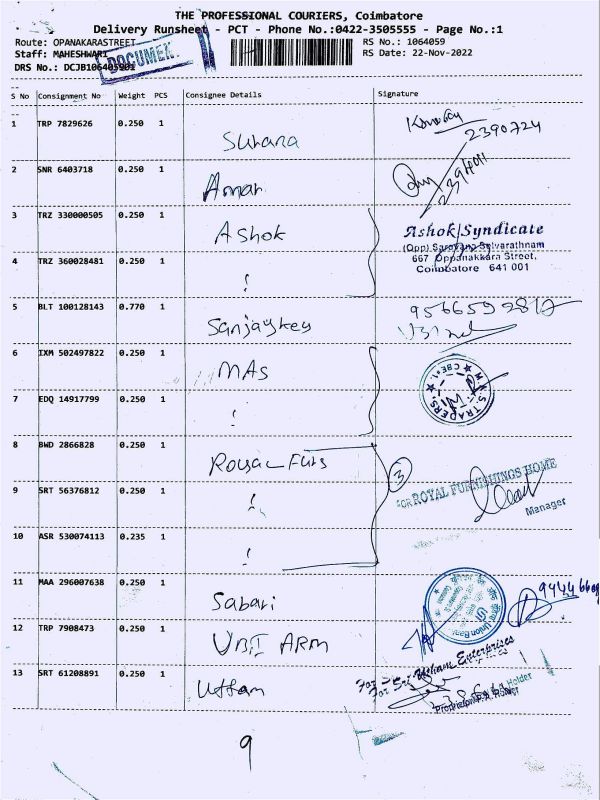 THE PROFESSIONAL COURIERS, Coimbatore
Delivery Runsheet - PCT - Phone No.:0422-3505555 - Page No.:1
Route: OPANAKARASTREET RS No.: 1064059
Staff: MAHESHWARI RS Date: 22-Nov-2022
DRS No.: DCJB106405901
DOCUMEN
S No Consignment No Weight PCS Consignee Details Signature
1 TRP 7829626 0.250 1 Suhana
2390724
2 SNR 6403718 0.250 1 Amar
3 TRZ 330000505 0.250 1 Ashok
Ashok Syndicate
(Opp) Saravana Selvarathnam
667 Oppanakkara Street,
Coimbatore 641 001
4 TRZ 360028481 0.250 1
5 BLT 100128143 0.770 1
6 IXM 502497822 0.250 1 MAs
M.K.S. TRADERS CBE-1
7 EDQ 14917799 0.250 1
8 BWD 2866828 0.250 1 Royal Furs
3
FOR ROYAL FURNISHINGS HOME
Manager
9 SRT 56376812 0.250 1
10 ASR 530074113 0.235 1
11 MAA 296007638 0.250 1 Sabari
Union Bank
12 TRP 7908473 0.250 1 UBI ARM
For Sri Uttham Enterprises
13 SRT 61208891 0.250 1 Uttam
Holder
9